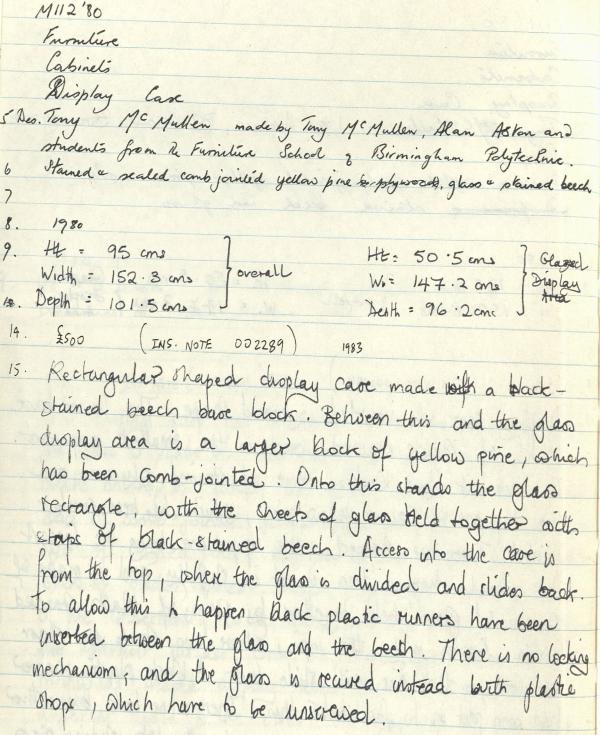 M112 '80
Furniture
Cabinets
Display Case
5 Des. Tony McMullen made by Tony McMullen, Alan Aston and
students from the Furniture School of Birmingham Polytechnic.
6 Stained & sealed comb jointed yellow pine glass & stained beech
7
8. 1980
9. Ht = 95 cms Ht = 50.5 cms Glazed
Width = 152.3 cms overall W = 147.2 cms Display
Depth = 101.5 cms Depth = 96.2 cms Area
14. £500 (INS. NOTE 002289) 1983
15. Rectangular shaped display case made with a black-
stained beech base block. Between this and the glass
display area is a larger block of yellow pine, which
has been comb-jointed. Onto this stands the glass
rectangle, with the sheets of glass held together with
strips of black-stained beech. Access into the case is
from the top, where the glass is divided and slides back.
To allow this to happen black plastic runners have been
inserted between the glass and the beech. There is no locking
mechanism, and the glass is secured instead with plastic
stops, which have to be unscrewed.